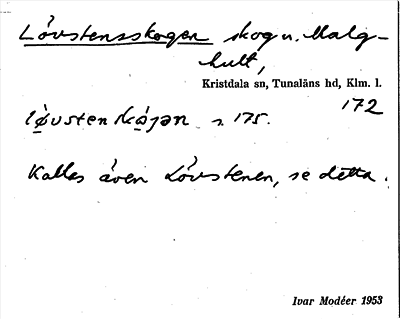 Lövstensskogen skog u. Malg-
hult,
Kristdala sn, Tunaläns hd, Klm. l.
172
lø̀vstenskǻgən s. 175.
Kallas även Lövstenen, se detta.
Ivar Modéer 1953